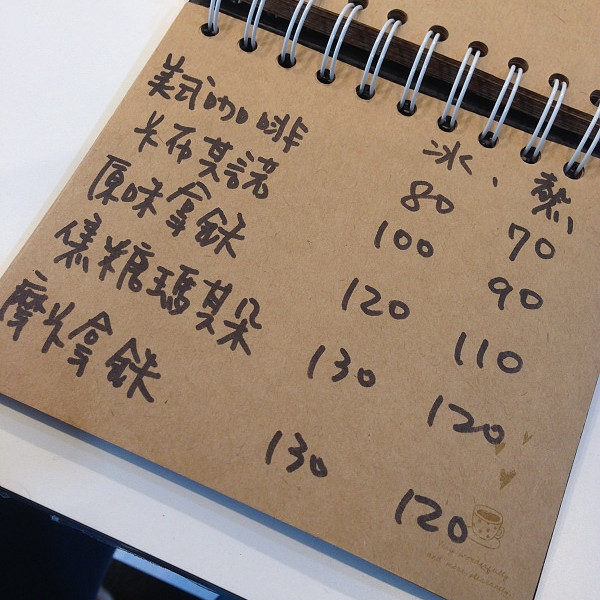 冰、熱
美式咖啡 80 70
卡布其諾 100 90
原味拿鉄 120 110
焦糖瑪其朵 130 120
摩卡拿鉄 130 120